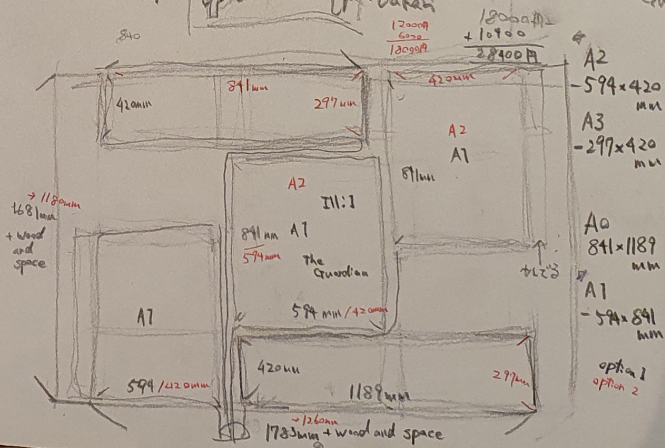 Japan
840
12000円
6000
18000円
18000円
+10400
28400円
A2
-594×420
mm
A3
-297×420
mm
A0
841×1189
mm
A1
-594×841
mm
option 1
option 2
841mm
420mm
297mm
420mm
A2
A1
841mm
→1180mm
1681mm
+ wood
and
space
A2
Ill:1
A1
841mm
594mm
The
Guardian
594mm/420mm
A1
594/420mm
420mm
297mm
1189mm
→1260mm
1783mm + wood and space